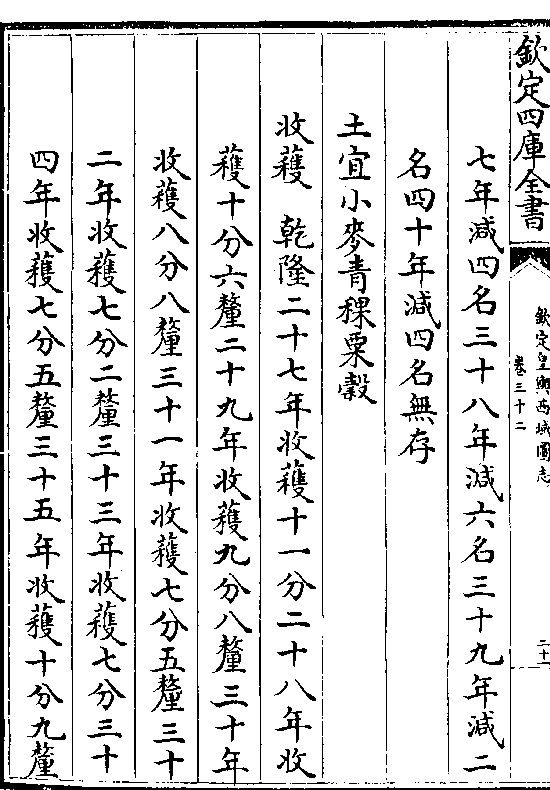 欽定四庫全書
欽定皇輿西域圖志
卷三十二
二十一
七年減四名三十八年減六名三十九年減二
名四十年減四名無存
土宜小麥青稞粟穀
收穫　乾隆二十七年收穫十一分二十八年收
穫十分六釐二十九年收穫九分八釐三十年
收穫八分八釐三十一年收穫七分五釐三十
二年收穫七分二釐三十三年收穫七分三十
四年收穫七分五釐三十五年收穫十分九釐